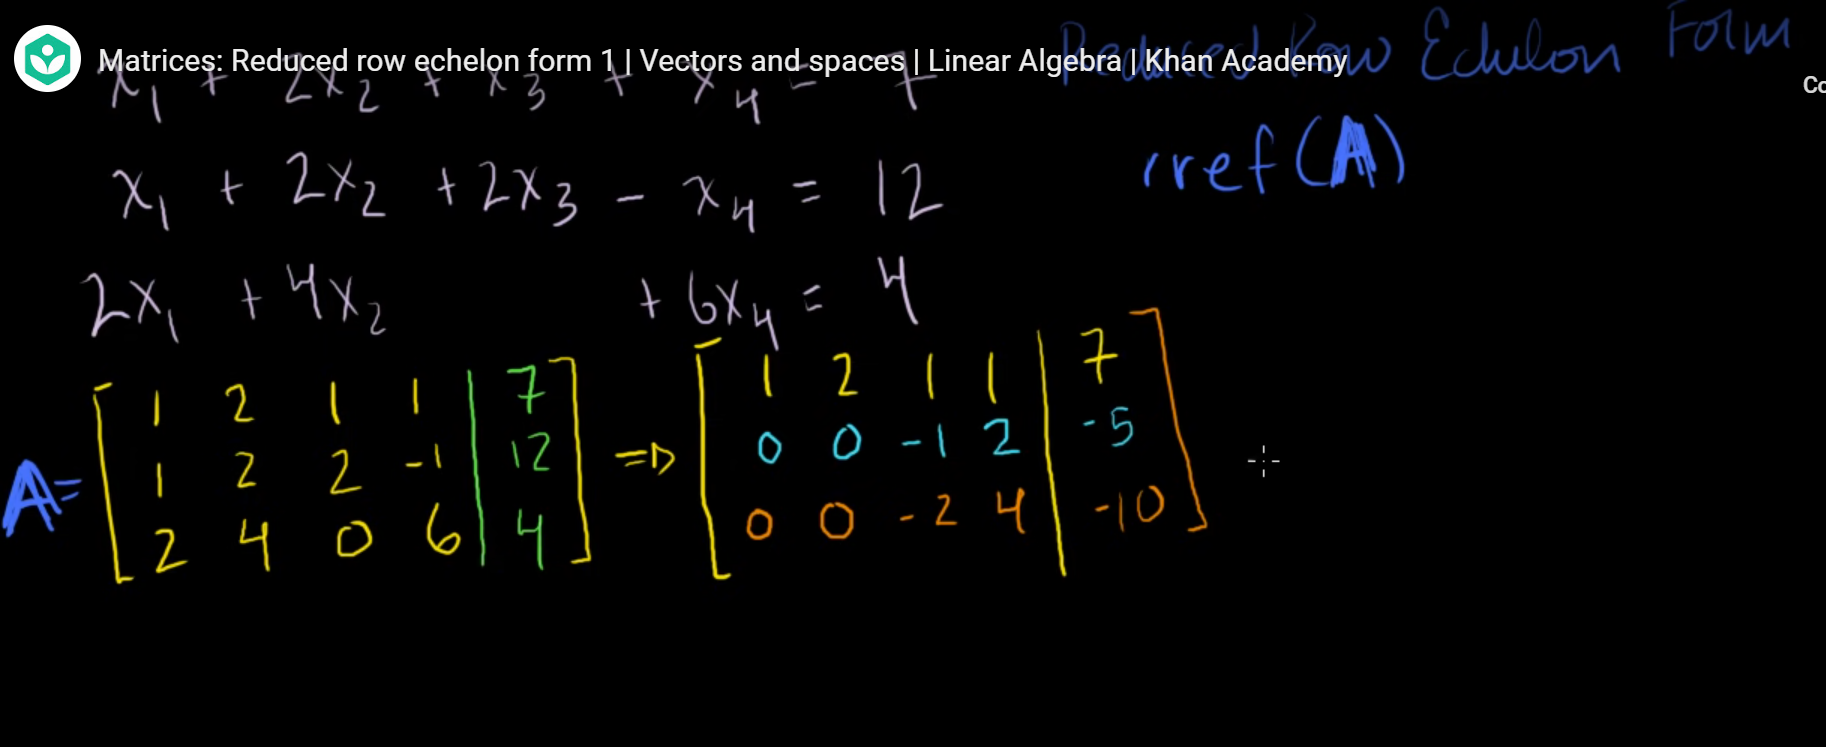 Matrices: Reduced row echelon form 1 | Vectors and spaces | Linear Algebra | Khan Academy
Reduced Row Echelon Form
Co
x₁ + 2x₂ + x₃ + x₄ = 7
rref(A)
x₁ + 2x₂ + 2x₃ - x₄ = 12
2x₁ + 4x₂ + 6x₄ = 4
A= [ 1 2 1 1 | 7 ] => [ 1 2 1 1 | 7 ]
1 2 2 -1 | 12 0 0 -1 2 | -5
2 4 0 6 | 4 0 0 -2 4 | -10